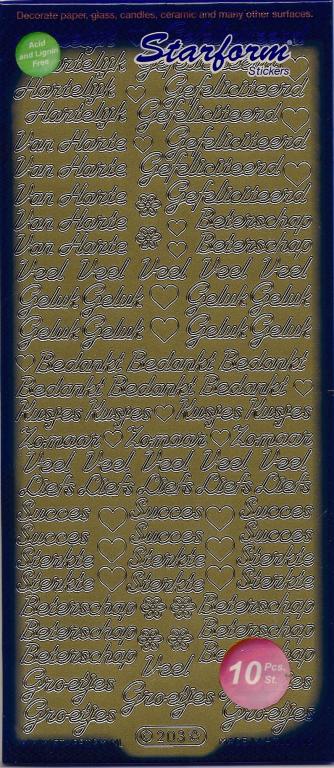 Decorate paper, glass, candles, ceramic and many other surfaces.
Acid and Lignin Free
Starform®
Stickers
Hartelijk Gefeliciteerd
Hartelijk Gefeliciteerd
Van Harte Gefeliciteerd
Van Harte Gefeliciteerd
Van Harte Gefeliciteerd
Van Harte Beterschap
Van Harte Beterschap
Veel Veel Veel Veel Veel
Geluk Geluk Geluk Geluk
Geluk Geluk Geluk Geluk
Bedankt Bedankt Bedankt
Bedankt Bedankt Bedankt
Kusjes Kusjes Kusjes Kusjes
Zomaar Zomaar Zomaar
Veel Veel Veel Veel Veel
Liefs Liefs Liefs Liefs Liefs
Succes Succes Succes
Succes Succes Succes
Sterkte Sterkte Sterkte
Sterkte Sterkte Sterkte
Beterschap Beterschap
Beterschap Beterschap
Beterschap Veel Beterschap
Groetjes Groetjes
Groetjes
Groetjes Groetjes
10 Pcs. St.
© 203